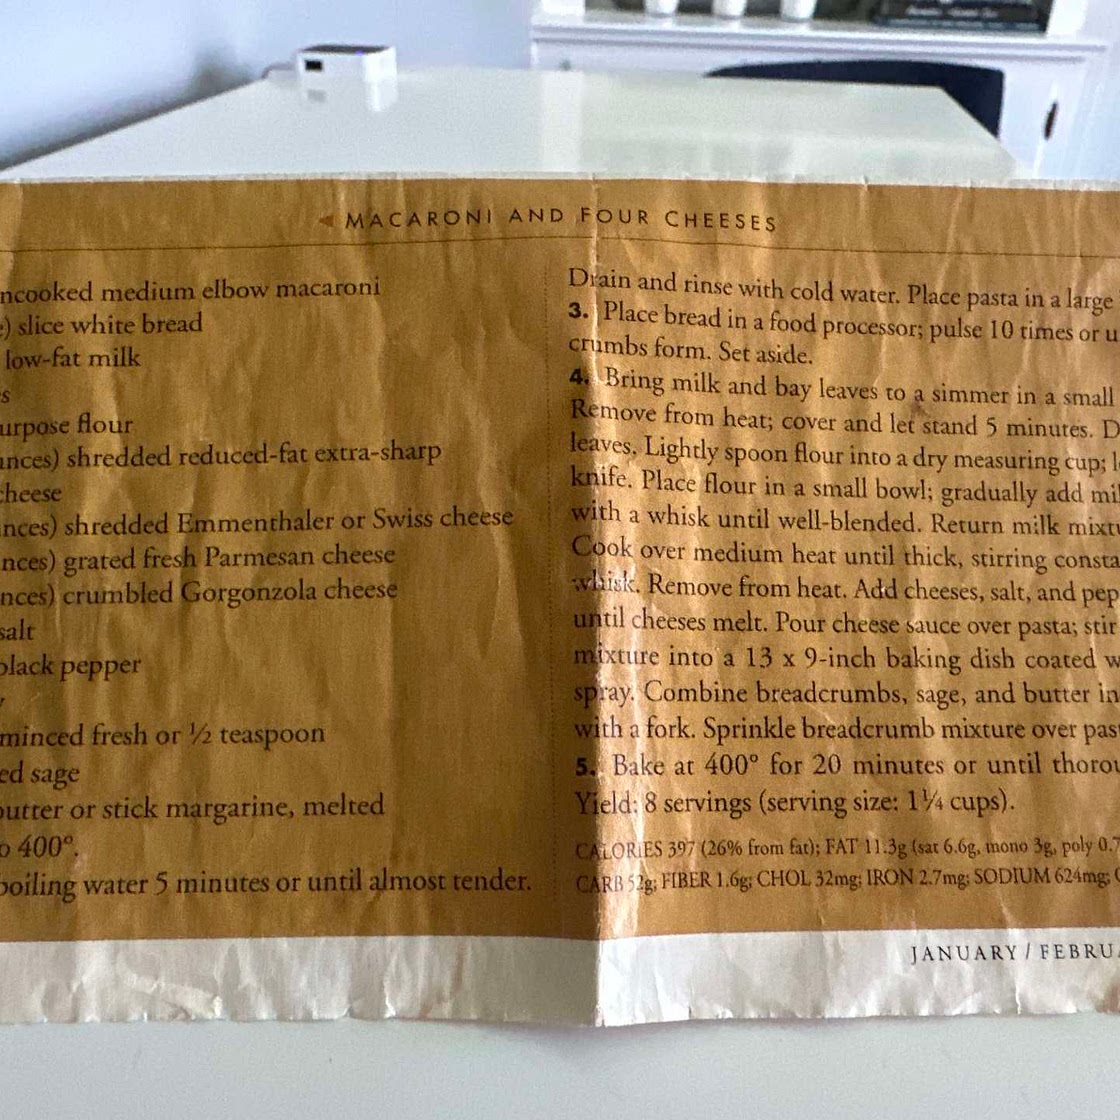 MACARONI AND FOUR CHEESES
ncooked medium elbow macaroni
e) slice white bread
low-fat milk
s
urpose flour
unces) shredded reduced-fat extra-sharp
cheese
nces) shredded Emmenthaler or Swiss cheese
nces) grated fresh Parmesan cheese
nces) crumbled Gorgonzola cheese
salt
black pepper
minced fresh or ½ teaspoon
ed sage
butter or stick margarine, melted
o 400°.
boiling water 5 minutes or until almost tender.
Drain and rinse with cold water. Place pasta in a large
3. Place bread in a food processor; pulse 10 times or u
crumbs form. Set aside.
4. Bring milk and bay leaves to a simmer in a small
Remove from heat; cover and let stand 5 minutes. D
leaves. Lightly spoon flour into a dry measuring cup; l
knife. Place flour in a small bowl; gradually add mil
with a whisk until well-blended. Return milk mixtu
Cook over medium heat until thick, stirring consta
whisk. Remove from heat. Add cheeses, salt, and pep
until cheeses melt. Pour cheese sauce over pasta; stir
mixture into a 13 x 9-inch baking dish coated w
spray. Combine breadcrumbs, sage, and butter in
with a fork. Sprinkle breadcrumb mixture over pas
5. Bake at 400° for 20 minutes or until thorou
Yield: 8 servings (serving size: 1¼ cups).
CALORIES 397 (26% from fat); FAT 11.3g (sat 6.6g, mono 3g, poly 0.7
CARB 52g; FIBER 1.6g; CHOL 32mg; IRON 2.7mg; SODIUM 624mg; C
JANUARY / FEBRUA